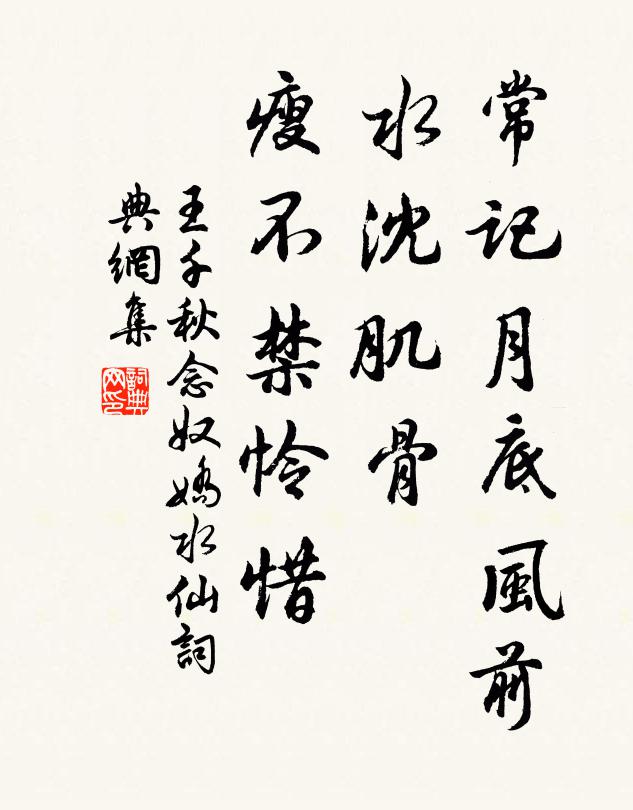 常記月底風前
水沈肌骨
瘦不禁憐惜
王千秋念奴嬌水仙詞
典網集
詞典網印